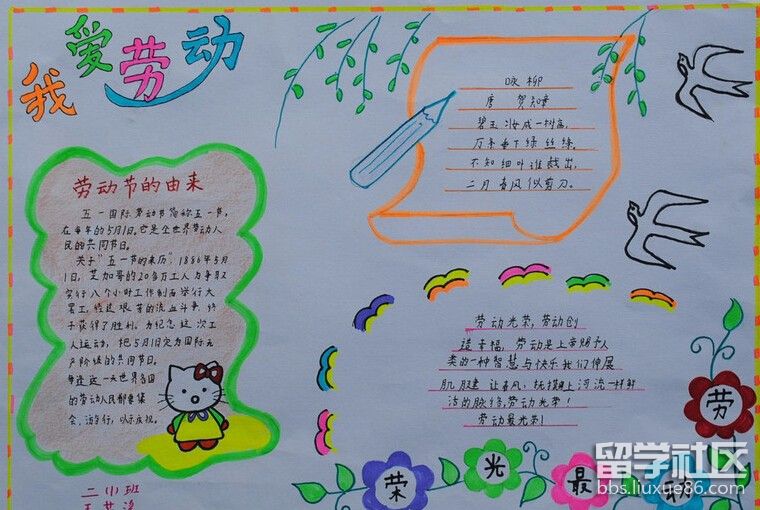 我爱劳动
劳动节的由来
五一国际劳动节简称五一节，
在每年的5月1日。它是全世界劳动人
民的共同节日。
关于"五一节的来历：1886年5月
1日，芝加哥的20多万工人为争取
实行八个小时工作制而举行大
罢工，经过艰苦的流血斗争，终
于获得了胜利。为纪念这次工
人运动，把5月1日定为国际无
产阶级的共同节日。
每逢这一天世界各国
的劳动人民都要集
会、游行，以示庆祝。
二(1)班
咏柳
唐 贺知章
碧玉妆成一树高，
万条垂下绿丝绦。
不知细叶谁裁出，
二月春风似剪刀。
劳动光荣，劳动创
造幸福，劳动是上帝赐予人
类的一种智慧与快乐我们伸展
肌腱 让春风：抚摸上河流一样鲜
活的脉络，劳动光荣！
劳动最光荣！
劳
荣光最
留学社区
bbs.liuxue86.com